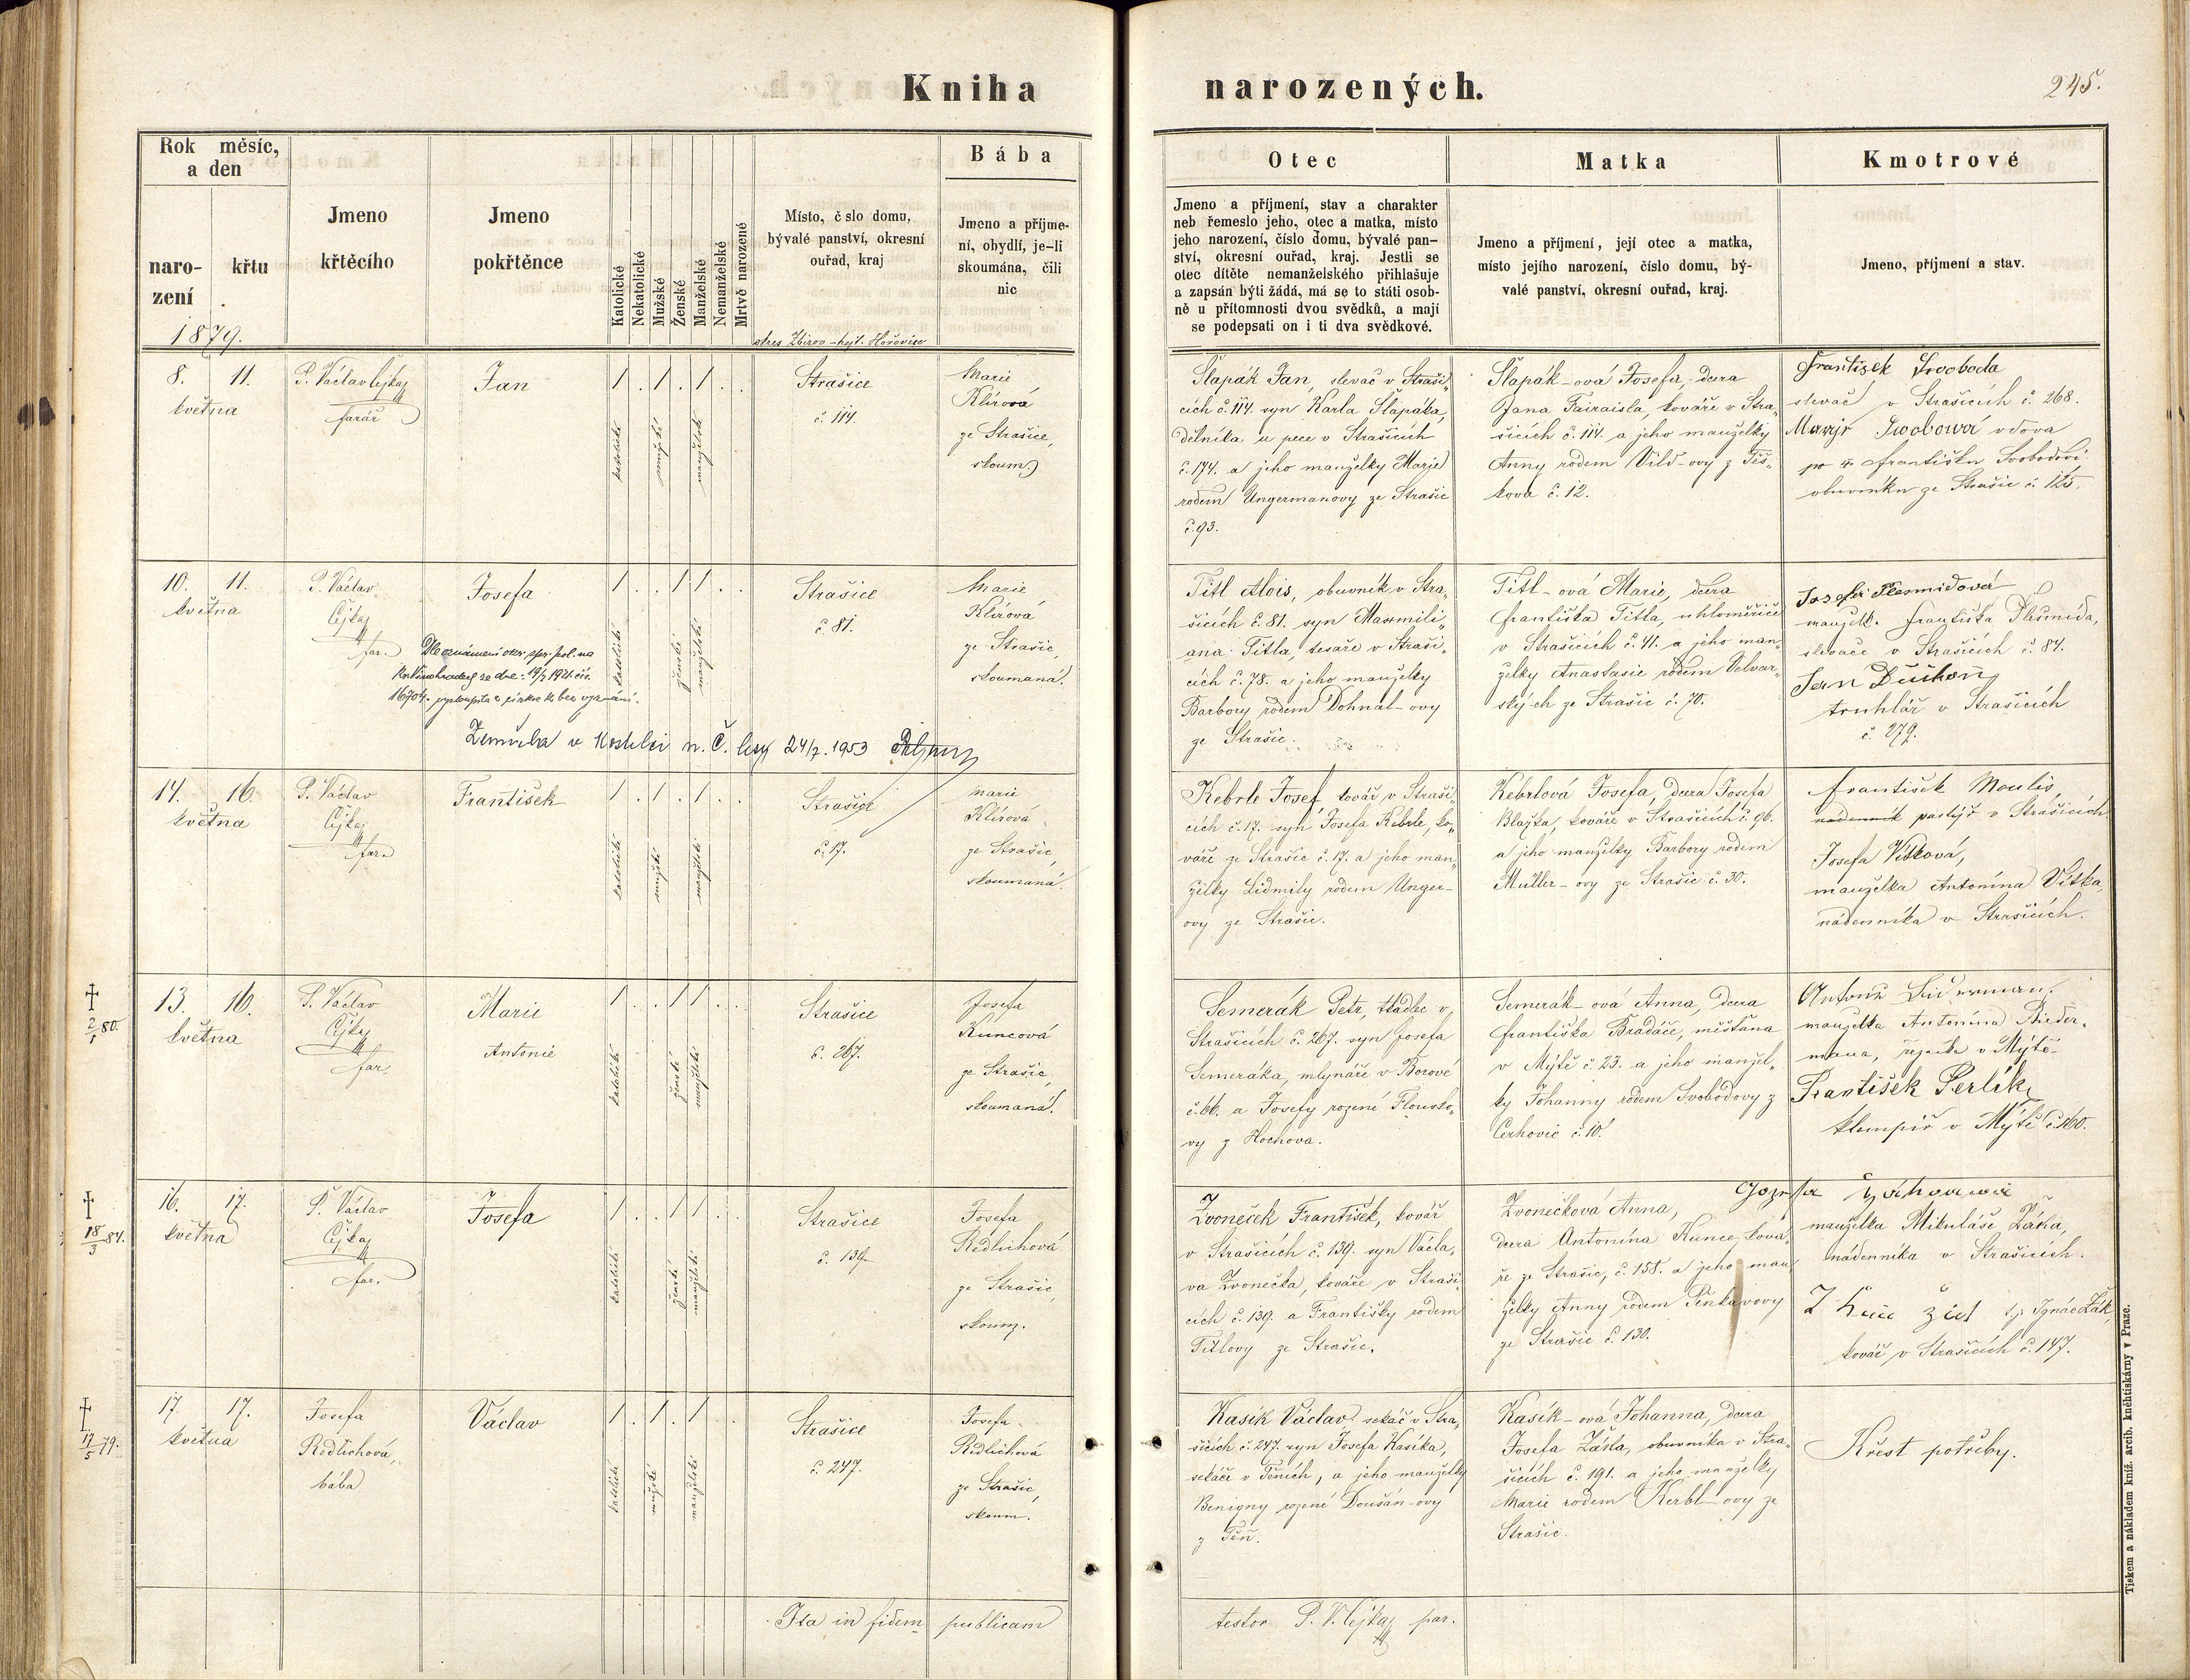 Kniha narozených.
245.
Rok měsíc,
a den
naro-
zení
křtu
1879.
Jmeno
křtěcího
Jmeno
pokřtěnce
Katolické
Nekatolické
Mužské
Ženské
Manželské
Nemanželské
Mrtvě narozené
Místo, č slo domu,
bývalé panství, okresní
ouřad, kraj
okres Zbirov - hejt. Hořovice
Bába
Jmeno a příjme-
ní, obydlí, je-li
skoumána, čili
nic
Otec
Jmeno a příjmení, stav a charakter
neb řemeslo jeho, otec a matka, místo
jeho narození, číslo domu, bývalé pan-
ství, okresní ouřad, kraj. Jestli se
otec dítěte nemanželského přihlašuje
a zapsán býti žádá, má se to státi osob-
ně u přítomnosti dvou svědků, a mají
se podepsati on i ti dva svědkové.
Matka
Jmeno a příjmení, její otec a matka,
místo jejího narození, číslo domu, bý-
valé panství, okresní ouřad, kraj.
Kmotrové
Jmeno, příjmení a stav.
8. 11.
května
P. Václav Čejka
farář
Jan
1 . 1 . 1 . .
katolické
mužské
Strašice
č. 114.
Marie
Klírová
ze Strašice,
skoum.
Šlapák Jan, slevač v Straši-
cích č. 114. syn Karla Šlapáka,
dělníka u pece v Strašicích
č. 174. a jeho manželky Marie
rodem Ungermanovy ze Strašic
č. 93.
Šlapák-ová Josefa, dcera
Jana Fairaisla, kováře v Stra-
šicích č. 114. a jeho manželky
Anny rodem Vild-ovy z Těš-
kova č. 12.
František Svoboda
slevač v Strašicích č. 268.
Marije Swobowá vdova
po František Svobodovi
obuvníku ze Strašic č. 125.
10. 11.
května
P. Václav
Čejka
far.
Josefa
1 . . 1 1 . .
katolické
ženské
manželské
Dle oznámení okr. spr. pol. na
Kr. Vinohradech ze dne 19/7 1921 čís.
16704. vystoupila z církve k bez vyznání.
Zemřela v Kostelci n. Č. lesy 24/7. 1953
Strašice
č. 81.
Marie
Klírová
ze Strašic,
skoumaná.
Titl Alois, obuvník v Stra-
šicích č. 81. syn Maxmili-
ana Titla, tesaře v Straši-
cích č. 78. a jeho manželky
Barbory rodem Dohnal-ovy
ze Strašic.
Titl-ová Marie, dcera
Františka Titla, uhloměřiče
v Strašicích č. 41. a jeho man-
želky Anastasie rodem Velvar-
ských ze Strašic č. 70.
Josefa Plesmidová
manželk. Františka Plesmida,
slevače v Strašicích č. 84.
Jan Duchoň
truhlář v Strašicích
č. 279.
14. 16.
května
P. Václav
Čejka
far.
František
1 . 1 . 1 . .
katolické
mužské
manželské
Strašice
č. 17.
Marie
Klírová
ze Strašic,
skoumaná.
Kebrle Josef kovář v Straši-
cích č. 17. syn Josefa Kebrle, ko-
váře ze Strašic č. 17. a jeho man-
želky Lidmily rodem Unger-
ovy ze Strašic.
Kebrlová Josefa, dcera Josefa
Blažka, kováře v Strašicích č. 96.
a jeho manželky Barbory rodem
Müller-ovy ze Strašic č. 30.
František Moulis,
nádenník pastýř v Strašicích
Josefa Vítková,
manželka Antonína Vítka,
nádenníka v Strašicích.
2/1 80.
13. 16.
května
P. Václav
Čejka
far.
Marie
Antonie
1 . . 1 1 . .
katolické
ženské
manželské
Strašice
č. 267.
Josefa
Kuncová
ze Strašic,
skoumaná.
Semerák Petr, tkadlec v
Strašicích č. 267. syn Josefa
Semeráka, mlynáře v Borové
č. 66. a Josefy rozené Flousko-
vy z Hochova.
Semerák-ová Anna, dcera
Františka Bradáče, měšťana
v Mýtě č. 23. a jeho manžel-
ky Johanny rodem Svobodovy z
Cerhovic č. 10.
manželka Antonína Bieder-
mana, řezníka v Mýtě
František Perlík
klempíř v Mýtě č. 160.
18/3 84.
16. 17.
května
P. Václav
Čejka
far.
Josefa
1 . . 1 1 . .
katolické
ženské
manželské
Strašice
č. 139.
Josefa
Redlichová
ze Strašic,
skoum.
Zvoneček František, kovář
v Strašicích č. 139. syn Václa-
va Zvonečka, kováře v Straši-
cích č. 139. a Františky rodem
Titlovy ze Strašic.
Zvonečková Anna,
dcera Antonína Kunce, ková-
ře ze Strašic, č. 158. a jeho man-
želky Anny rodem Pinkavovy
ze Strašic č. 130.
manželka Mikuláše Žáka,
nádenníka v Strašicích.
t.j. Ignác Žák,
kovář v Strašicích č. 147.
17/5 79.
17. 17.
května
Josefa
Redlichová,
bába
Václav
1 . 1 . 1 . .
katolické
mužské
manželské
Strašice
č. 247.
Josefa
Redlichová
ze Strašic,
skoum.
Kasík Václav sekáč v Stra-
šicích č. 247. syn Josefa Kasíka,
sekáče v Těních, a jeho manželky
Benigny rozené Doušán-ovy
z Těň.
Kasík-ová Johanna, dcera
Josefa Žášla, obuvníka v Stra-
šicích č. 191. a jeho manželky
Marie rodem Kerbl-ovy ze
Strašic.
Křest potřeby.
Ita in fidem publicam testor P. V. Čejka par.
Tiskem a nákladem kníž. arcib. knihtiskárny v Praze.